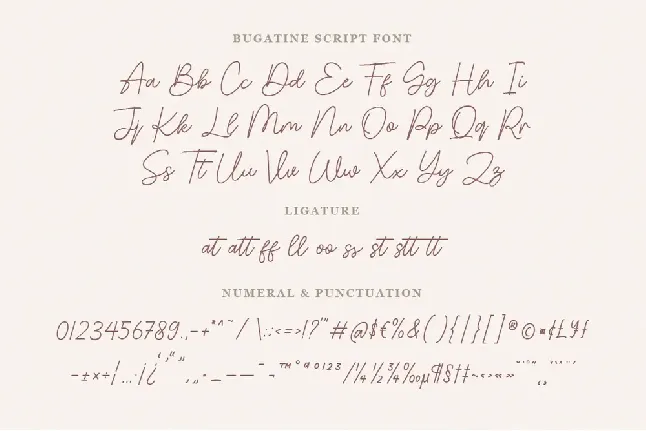 BUGATINE SCRIPT FONT
Aa Bb Cc Dd Ee Ff Gg Hh Ii
Jj Kk Ll Mm Nn Oo Pp Qq Rr
Ss Tt Uu Vv Ww Xx Yy Zz
LIGATURE
at att ff ll oo ss st stt tt
NUMERAL & PUNCTUATION
0123456789.,-+*^~/\:;<=>!?"#@$€%&(){|}[]®©•¢£¥ƒ
-±×÷¦…·¡¿ ‚„._–—¯¬™ºª0123/¼½¾‰µ¶§†‡~‹›«»